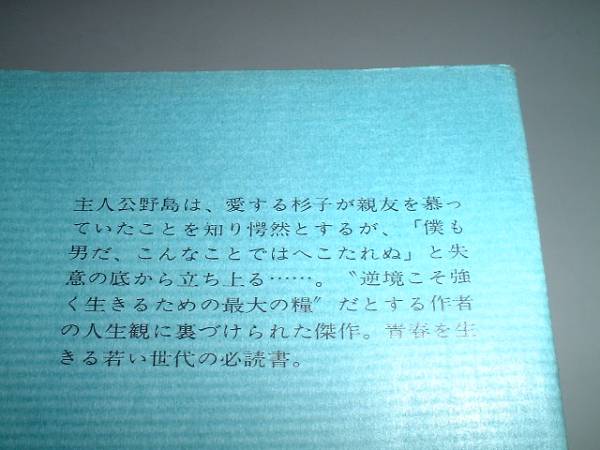 主人公野島は、愛する杉子が親友を慕っ
ていたことを知り愕然とするが、「僕も
男だ、こんなことではへこたれぬ」と失
意の底から立ち上る……。〝逆境こそ強
く生きるための最大の糧〟だとする作者
の人生観に裏づけられた傑作。青春を生
きる若い世代の必読書。